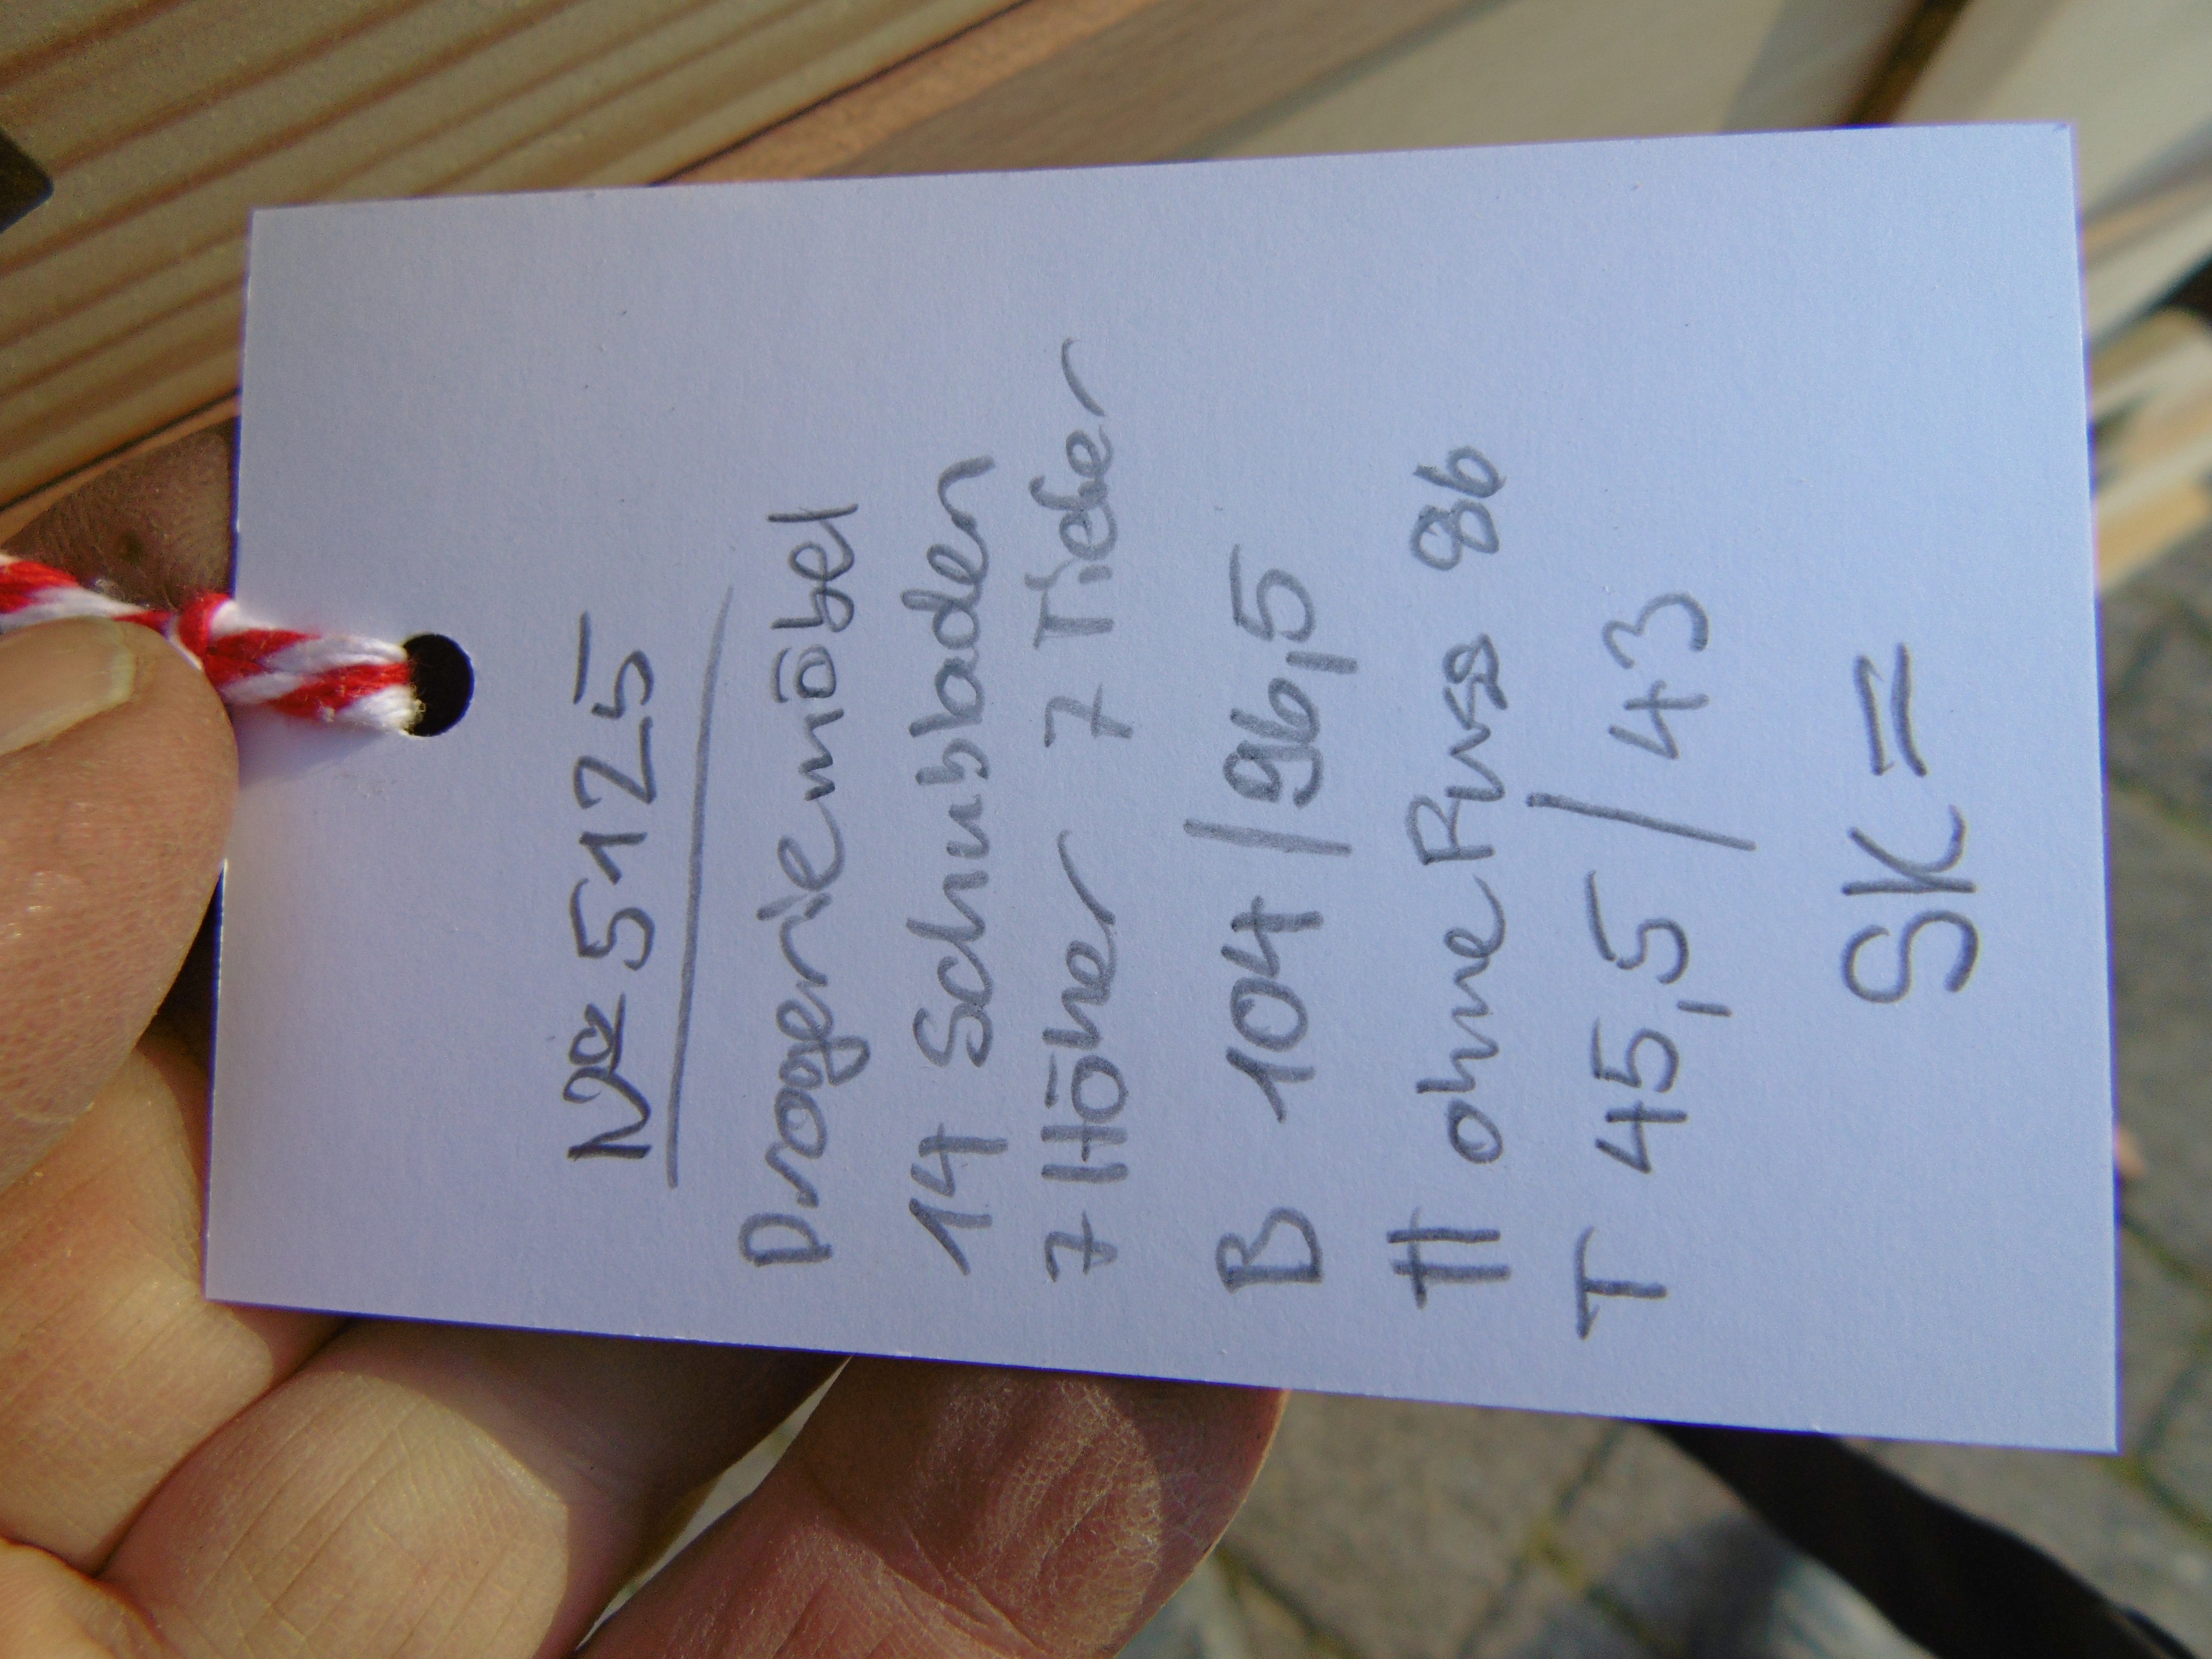 No 5125
Drogeriemöbel
14 Schubladen
7 Höher 7 Tiefer
B 104/96,5
H ohne Fuss 86
T 45,5 / 43
SK =